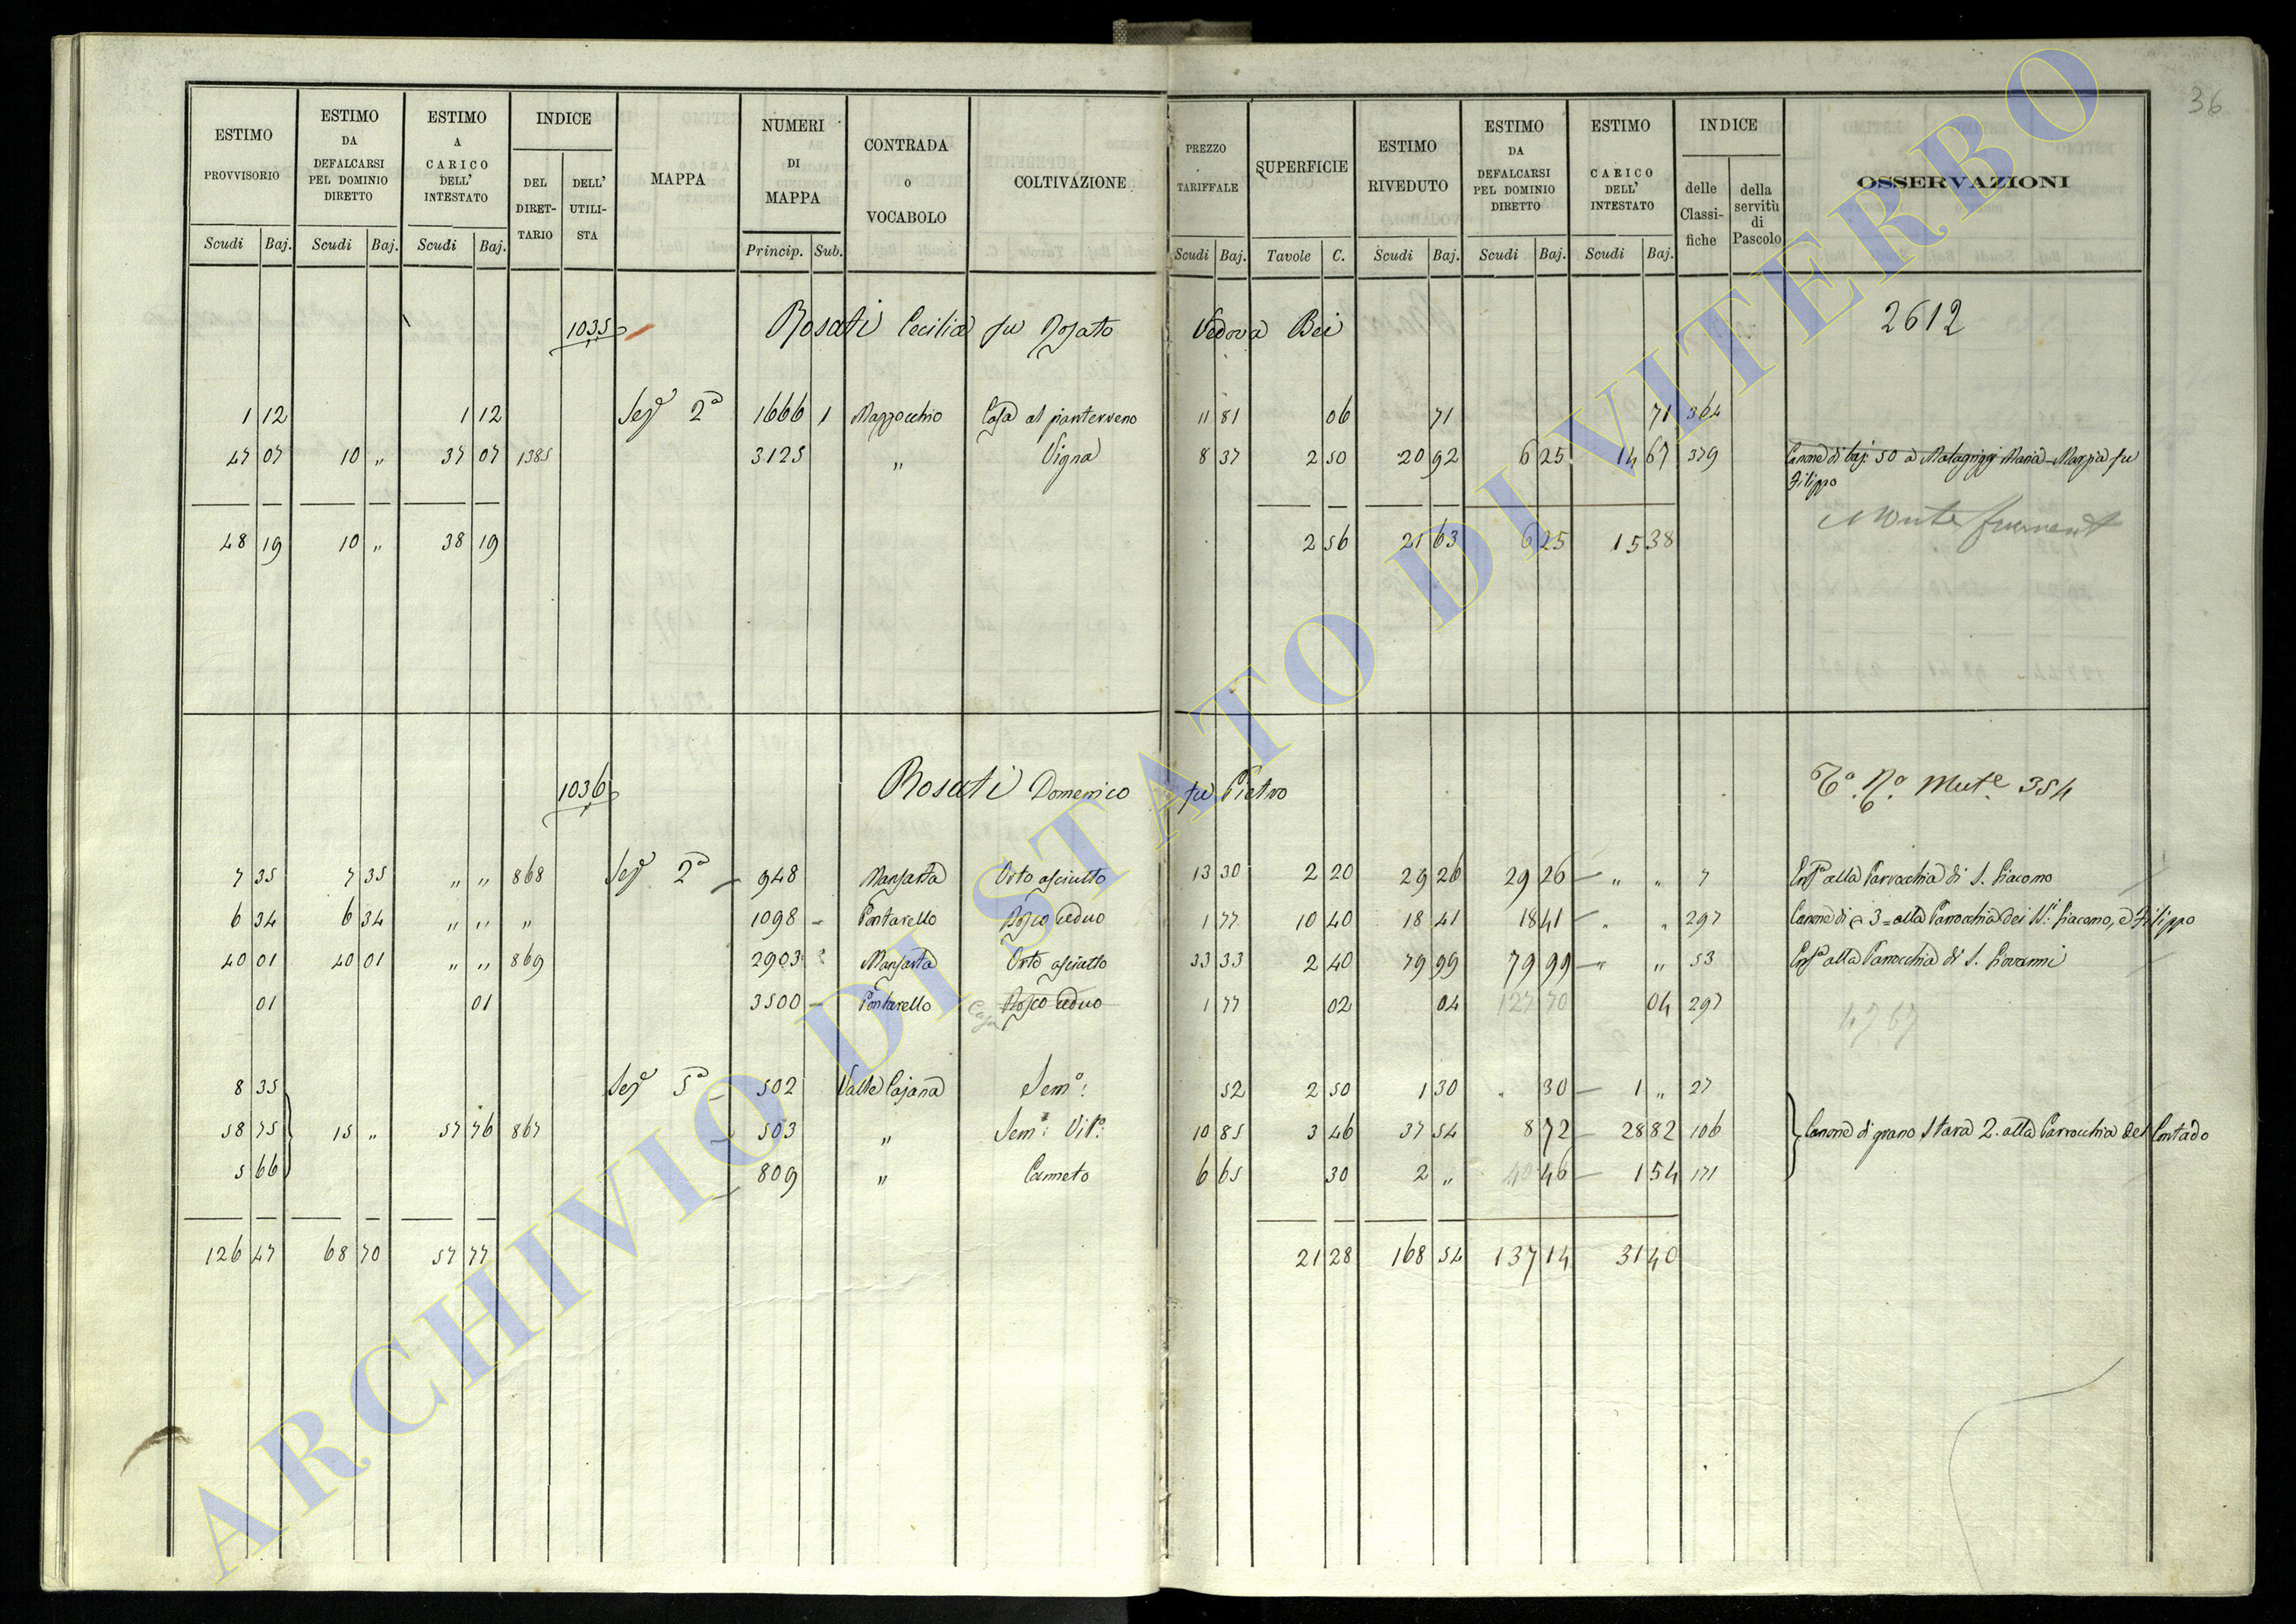 36
ESTIMO PROVVISORIO | ESTIMO DA DEFALCARSI PEL DOMINIO DIRETTO | ESTIMO A CARICO DELL' INTESTATO | INDICE | MAPPA | NUMERI DI MAPPA | CONTRADA O VOCABOLO | COLTIVAZIONE | PREZZO TARIFFALE | SUPERFICIE | ESTIMO RIVEDUTO | ESTIMO DA DEFALCARSI PEL DOMINIO DIRETTO | ESTIMO CARICO DELL' INTESTATO | INDICE | OSSERVAZIONI
DEL DIRET-TARIO | DELL' UTILI-STA | delle Classi-fiche | della servitù di Pascolo
Scudi | Baj. | Scudi | Baj. | Scudi | Baj. | Princip. | Sub. | Scudi | Baj. | Tavole | C. | Scudi | Baj. | Scudi | Baj. | Scudi | Baj.
1035 Rosati Cecilia fu Vedova Bei 2612
1 12 | 1 12 | Sez 2a | 1666 1 | Mazzocchio | Casa al pianterreno | 11 81 | 06 | 71 | 71 | 364
47 07 | 10 " | 37 07 | 1385 | 3125 | " | Vigna | 8 37 | 2 50 | 20 92 | 6 25 | 14 67 | 379 | Canone di baj: 50 a Maria fu
Filippo
48 19 | 10 " | 38 19 | 2 56 | 21 63 | 6 25 | 15 38
1036 Rosati Domenico fu Pietro 354
7 35 | 7 35 | " " | 868 | Sez 2a | 948 | Orto asciutto | 13 30 | 2 20 | 29 26 | 29 26 | " " | 7 | alla Parrocchia di S. Giacomo
6 34 | 6 34 | " " | " | 1098 | Pontarello | Bosco ceduo | 1 77 | 10 40 | 18 41 | 18 41 | " " | 297 | Canone di 3 = alla Parrocchia dei Giacomo, e Filippo
40 01 | 40 01 | " " | 869 | 2903 | Orto asciutto | 33 33 | 2 40 | 79 99 | 79 99 | " " | 53 | alla Parrocchia di S. Giovanni
01 | 01 | 3500 | Pontarello | Casa Bosco ceduo | 1 77 | 02 | 04 | 127 70 | 04 | 297 | 47.67
8 35 | Sez 5a | 502 | Valle Cajana | Semo: | 52 | 2 50 | 1 30 | " 30 | 1 " | 27
58 75 | 15 " | 57 76 | 867 | 503 | " | Semo: Vito: | 10 85 | 3 46 | 37 54 | 8 72 | 28 82 | 106 | Canone di grano Stara 2. alla Parrocchia del Contado
5 66 | 809 | " | Canneto | 6 65 | 30 | 2 " | 46 | 1 54 | 171
126 47 | 68 70 | 57 77 | 21 28 | 168 54 | 137 14 | 31 40
ARCHIVIO DI STATO DI VITERBO